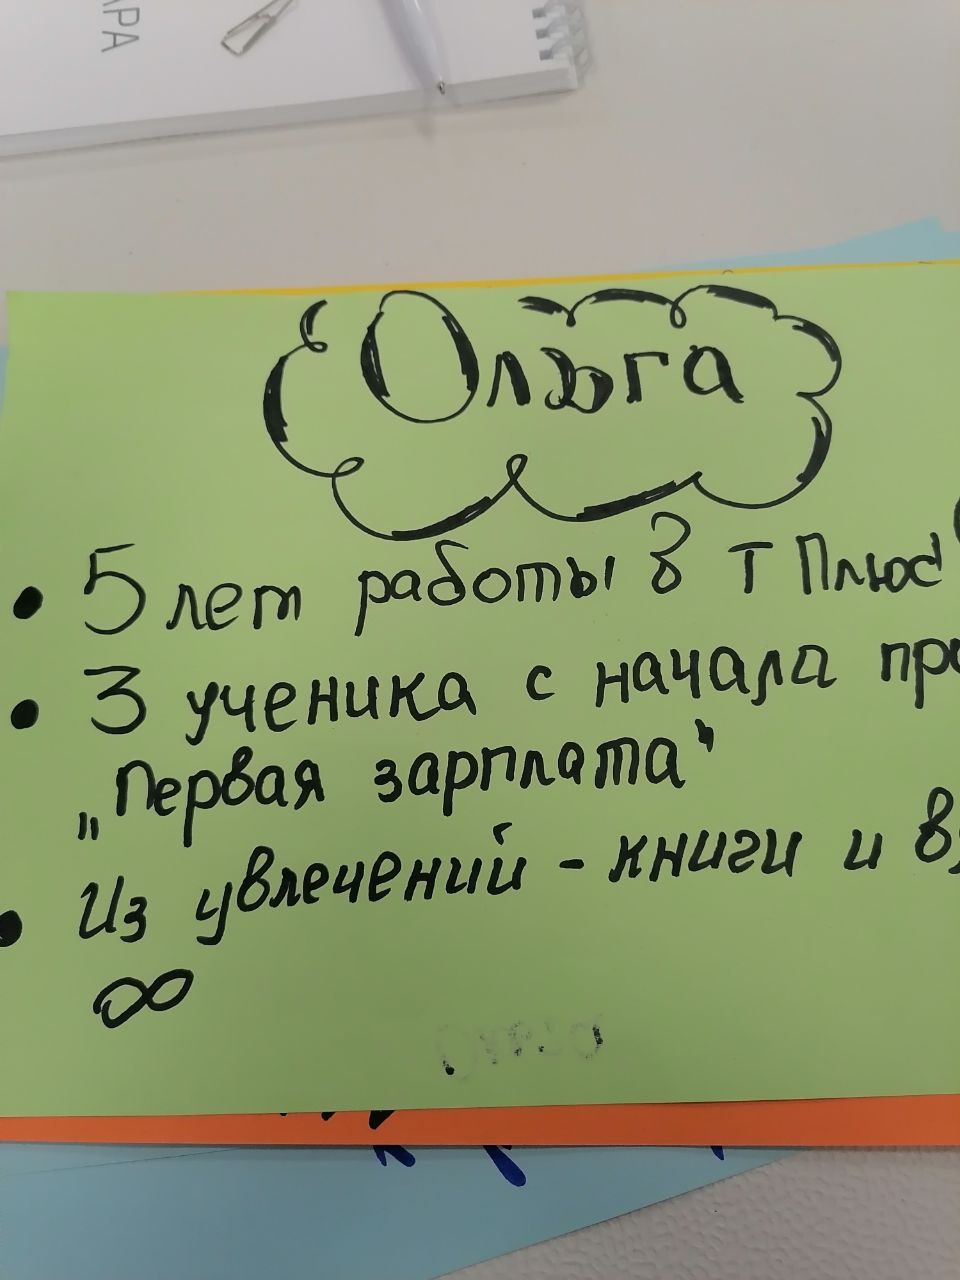 АРА
Ольга
• 5 лет работы в Т Плюс
• 3 ученика с начала
„Первая зарплата"
• Из увлечений - книги и
∞